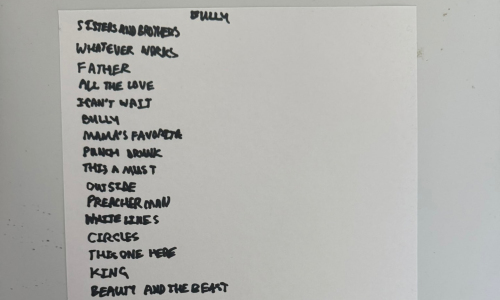 BULLY
SISTERS AND BROTHERS
WHATEVER WORKS
FATHER
ALL THE LOVE
I CAN'T WAIT
BULLY
MAMA'S FAVORITE
PUNCH DRUNK
THIS A MUST
OUTSIDE
PREACHER MAN
WHITE LINES
CIRCLES
THIS ONE HERE
KING
BEAUTY AND THE BEAST